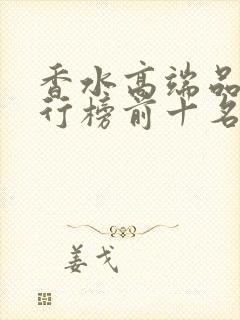 香水高端品
行榜前十名
姜戈